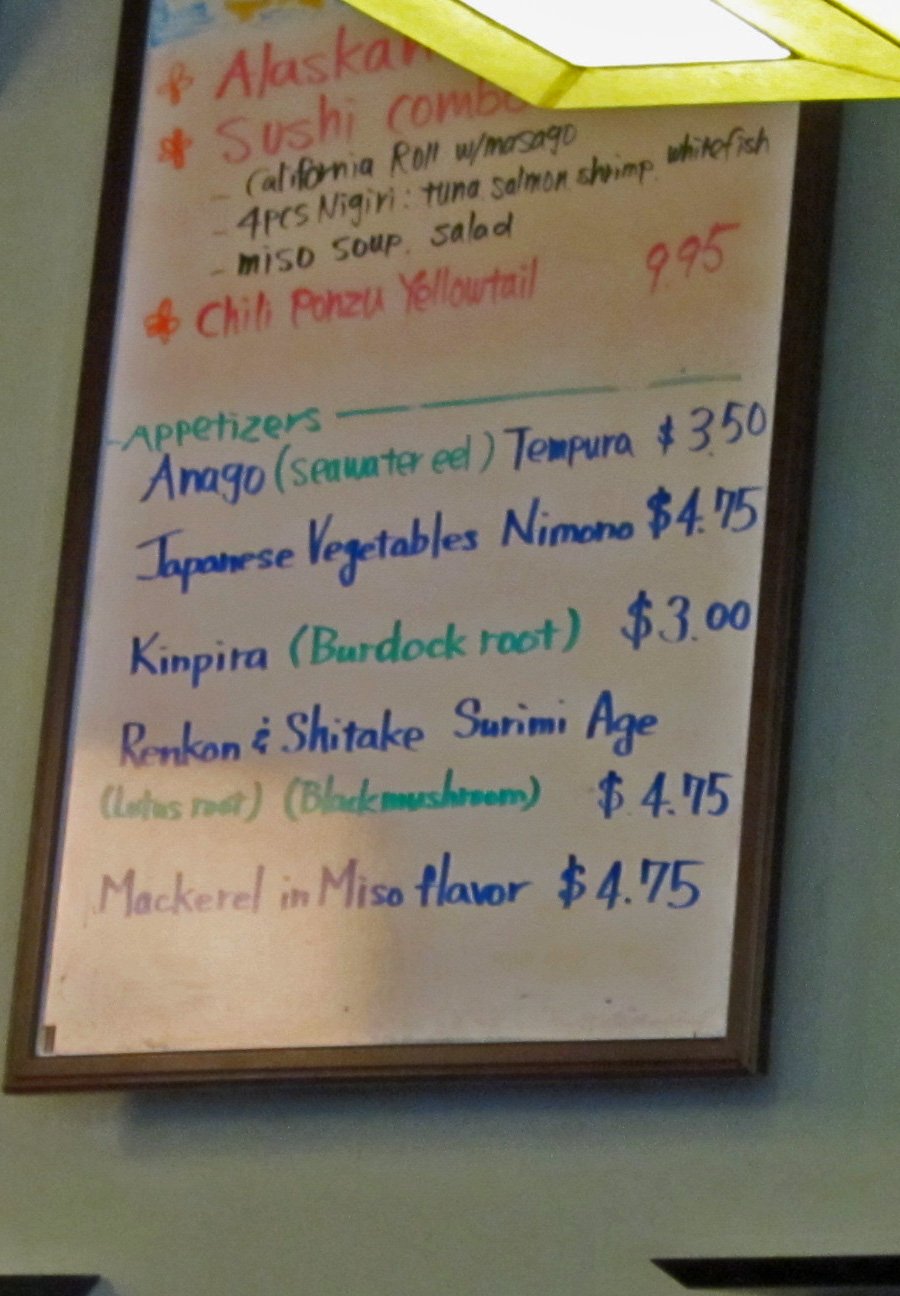 Alaskan
Sushi combo
- California Roll w/masago
- 4pcs Nigiri: tuna. salmon. shrimp. whitefish
- miso soup. salad
Chili Ponzu Yellowtail 9.95
-Appetizers
Anago (seawater eel) Tempura $3.50
Japanese Vegetables Nimono $4.75
Kinpira (Burdock root) $3.00
Renkon & Shitake Surimi Age
(Lotus root) (Blackmushroom) $4.75
Mackerel in Miso flavor $4.75